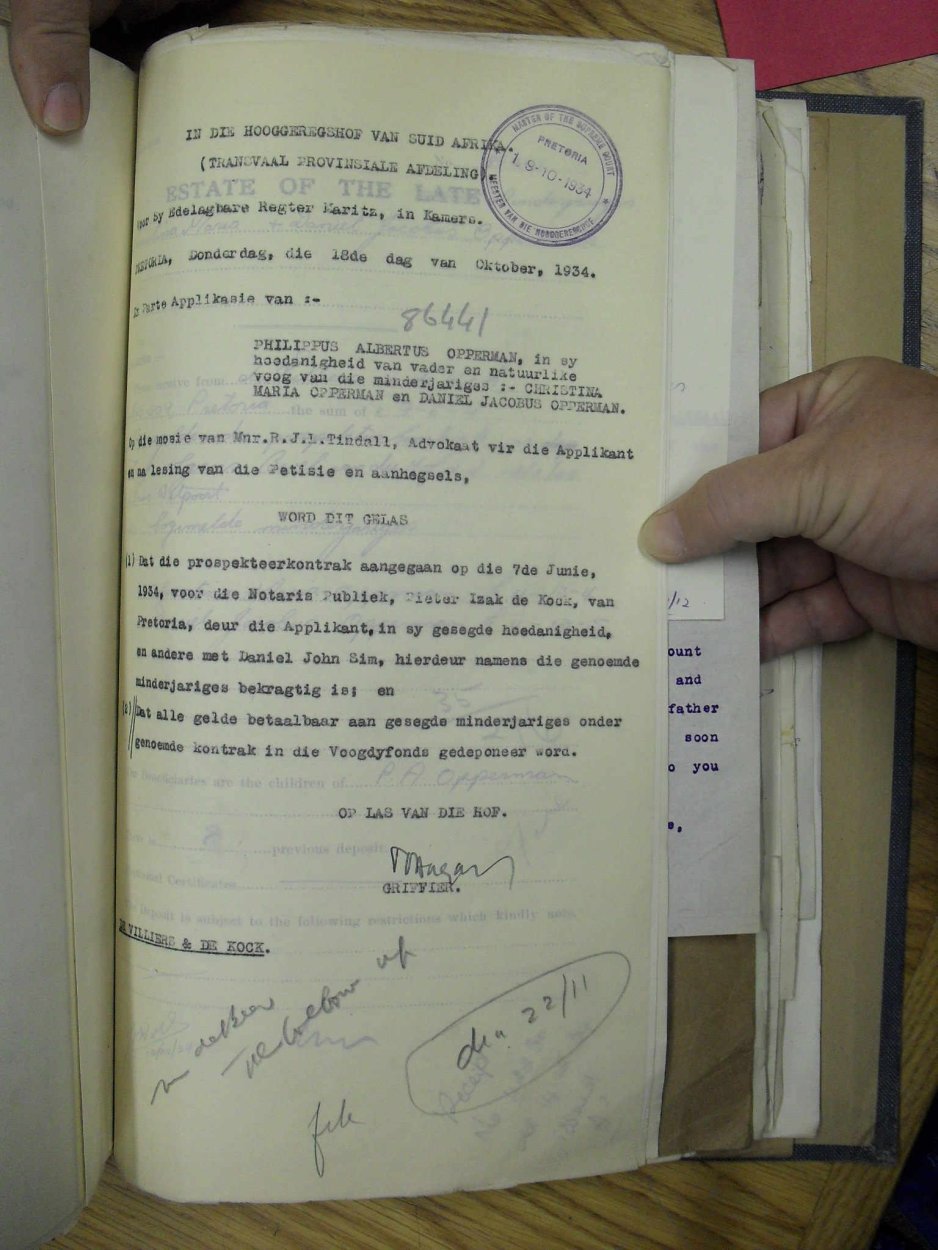 IN DIE HOOGGEREGSHOF VAN SUID AFRIKA.
(TRANSVAAL PROVINSIALE AFDELING)
MASTER OF THE SUPREME COURT
PRETORIA
18-10-1934
MEESTER VAN DIE HOOGGEREGSHOF
ESTATE OF THE LATE
Voor sy Edelagbare Regter Maritz, in Kamers.
PRETORIA, Donderdag, die 18de dag van Oktober, 1934.
Ex Parte Applikasie van :-
86441
PHILIPPUS ALBERTUS OPPERMAN, in sy
hoedanigheid van vader en natuurlike
voog van die minderjariges :- CHRISTINA
MARIA OPPERMAN en DANIEL JACOBUS OPPERMAN.
Pretoria the sum of £
Op die mosie van Mnr.R.J.L.Tindall, Advokaat vir die Applikant
en na lesing van die Petisie en aanhegsels,
WORD DIT GELAS
(1) Dat die prospekteerkontrak aangegaan op die 7de Junie,
1934, voor die Notaris Publiek, Pieter Izak de Kock, van
Pretoria, deur die Applikant, in sy gesegde hoedanigheid,
en andere met Daniel John Sim, hierdeur namens die genoemde
minderjariges bekragtig is; en
(2) Dat alle gelde betaalbaar aan gesegde minderjariges onder
genoemde kontrak in die Voogdyfonds gedeponeer word.
The Beneficiaries are the children of P. A. Opperman
OP LAS VAN DIE HOF.
previous deposit
GRIFFIER.
Certificates
The deposit is subject to the following restrictions which kindly note.
DE VILLIERS & DE KOCK.
22/11
/12
ount
and
father
soon
o you
e,